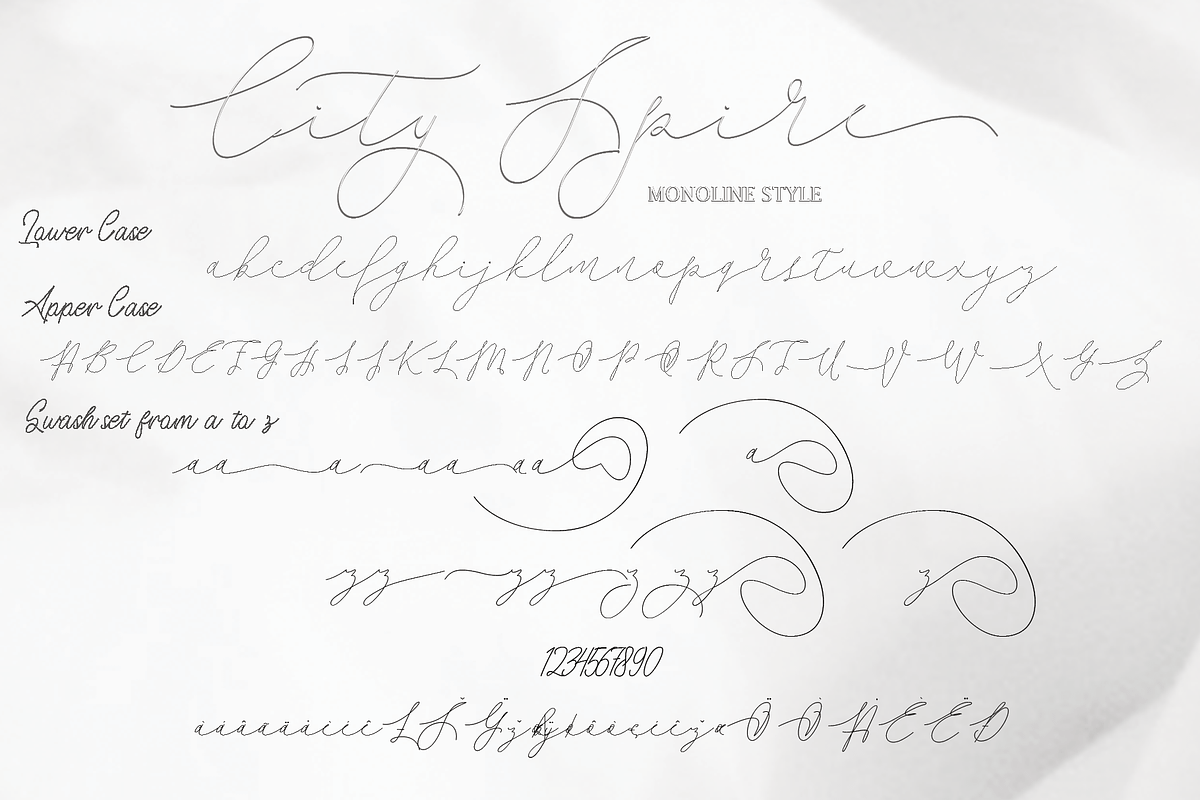 City Spire
MONOLINE STYLE
Lower Case
abcdefghijklmnopqrstuvwxyz
Apper Case
ABCDEFGHIJKLMNOPQRSTUVWXYZ
Swash set from a to z
aa a aa aa a
zz zz z zz z
1234567890